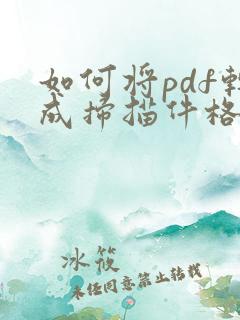 如何将pdf转
成扫描件格
冰筱
未经同意禁止转载